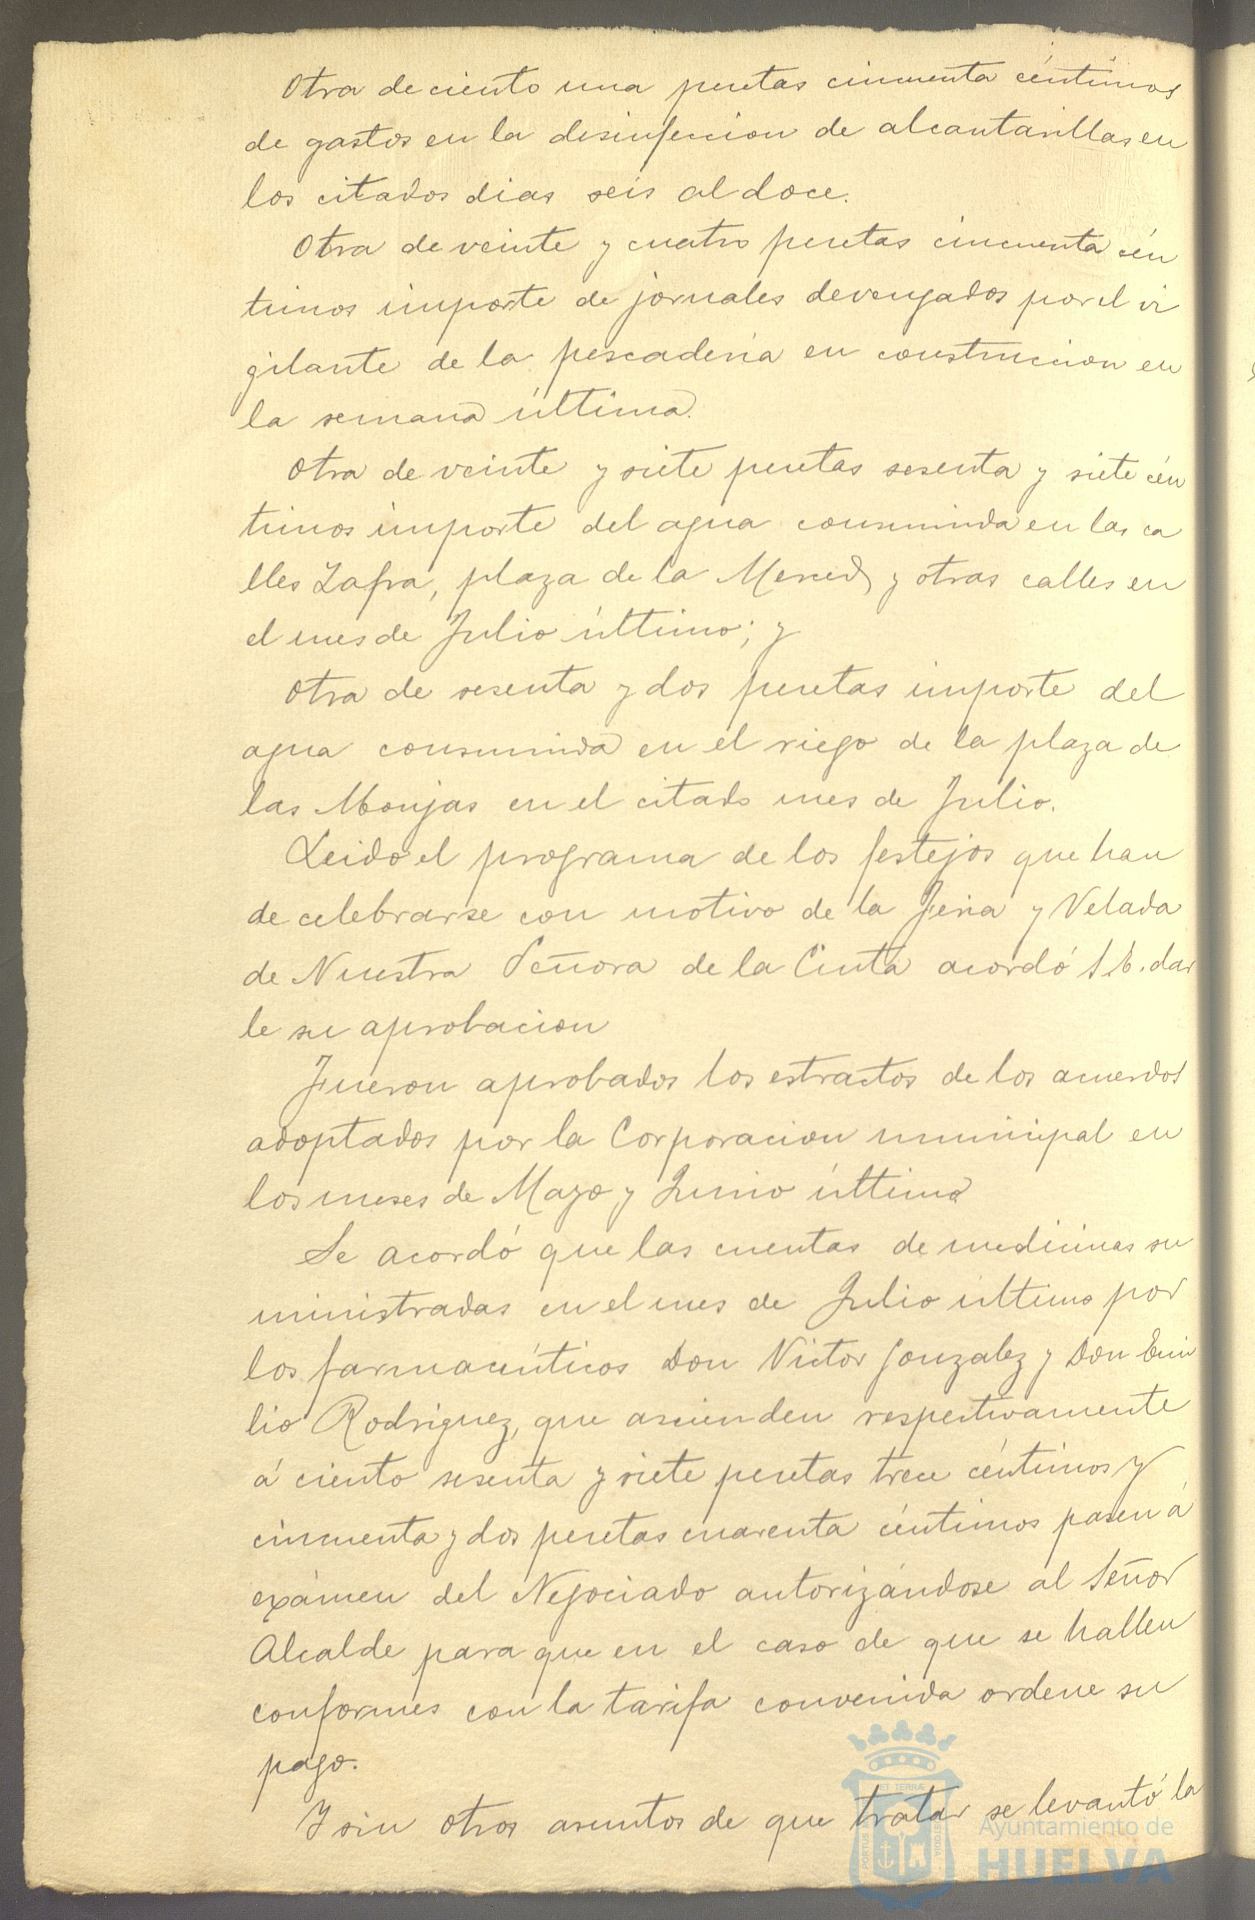 Otra de ciento una pesetas cincuenta céntimos
de gastos en la desinfeccion de alcantarillas en
los citados dias seis al doce.
Otra de veinte y cuatro pesetas cincuenta cén
timos importe de jornales devengados por el vi
gilante de la pescaderia en construccion en
la semana última.
Otra de veinte y siete pesetas sesenta y siete cén
timos importe del agua consumida en las ca
lles Zafra, plaza de la Merced y otras calles en
el mes de Julio último; y
Otra de sesenta y dos pesetas importe del
agua consumida en el riego de la plaza de
las Monjas en el citado mes de Julio.
Leido el programa de los festejos que han
de celebrarse con motivo de la Feria y Velada
de Nuestra Señora de la Cinta acordó S.E. dar
le su aprobacion
Fueron aprobados los estractos de los acuerdos
adoptados por la Corporacion municipal en
los meses de Mayo y Junio último
Se acordó que las cuentas de medicinas su
ministradas en el mes de Julio último por
los farmacéuticos Don Victor Gonzalez y Don Emi
lio Rodriguez, que ascienden respectivamente
á ciento sesenta y siete pesetas trece céntimos y
cincuenta y dos pesetas cuarenta céntimos pasen á
exámen del Negociado autorizándose al Señor
Alcalde para que en el caso de que se hallen
conformes con la tarifa convenida ordene su
pago.
Y sin otros asuntos de que tratar se levantó la
Ayuntamiento de
HUELVA